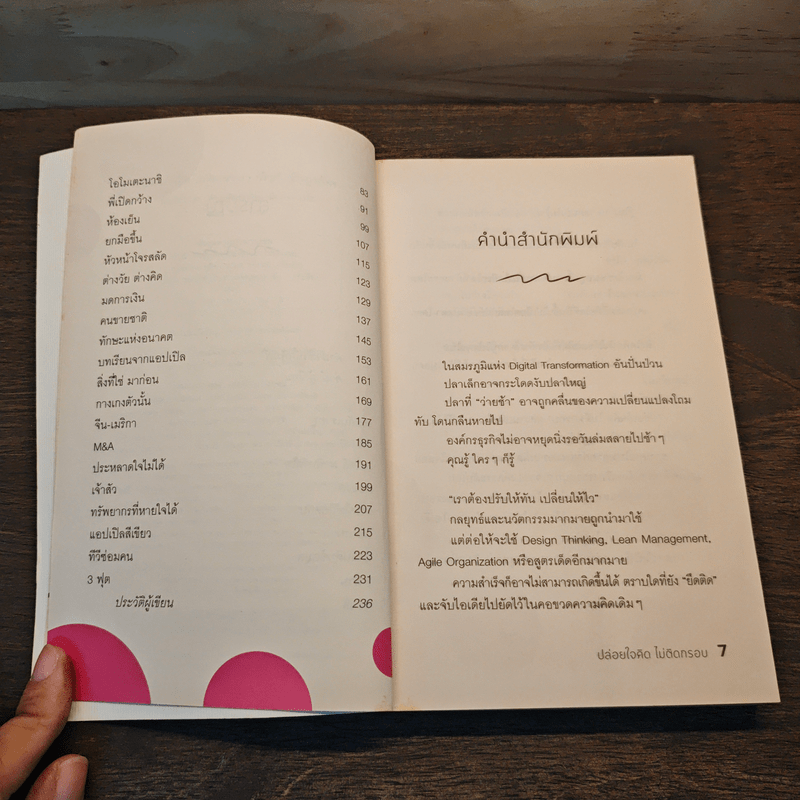 โอโมเตะนาชิ 83
พี่เปิดกว้าง 91
ห้องเย็น 99
ยกมือขึ้น 107
หัวหน้าโจรสลัด 115
ต่างวัย ต่างคิด 123
มดการเงิน 129
คนขายชาติ 137
ทักษะแห่งอนาคต 145
บทเรียนจากแอปเปิล 153
สิ่งที่ใช่ มาก่อน 161
กางเกงตัวนั้น 169
จีน-เมริกา 177
M&A 185
ประหลาดใจไม่ได้ 191
เจ้าสัว 199
ทรัพยากรที่หายใจได้ 207
แอปเปิลสีเขียว 215
ทีวีซ่อมคน 223
3 ฟุต 231
ประวัติผู้เขียน 236
คำนำสำนักพิมพ์
ในสมรภูมิแห่ง Digital Transformation อันปั่นป่วน
ปลาเล็กอาจกระโดดงับปลาใหญ่
ปลาที่ "ว่ายช้า" อาจถูกคลื่นของความเปลี่ยนแปลงโถม
ทับ โดนกลืนหายไป
องค์กรธุรกิจไม่อาจหยุดนิ่งรอวันล่มสลายไปช้าๆ
คุณรู้ ใครๆ ก็รู้
"เราต้องปรับให้ทัน เปลี่ยนให้ไว"
กลยุทธ์และนวัตกรรมมากมายถูกนำมาใช้
แต่ต่อให้จะใช้ Design Thinking, Lean Management,
Agile Organization หรือสูตรเด็ดอีกมากมาย
ความสำเร็จก็อาจไม่สามารถเกิดขึ้นได้ ตราบใดที่ยัง "ยึดติด"
และจับไอเดียไปยัดไว้ในคอขวดความคิดเดิมๆ
ปล่อยใจคิด ไม่ติดกรอบ 7